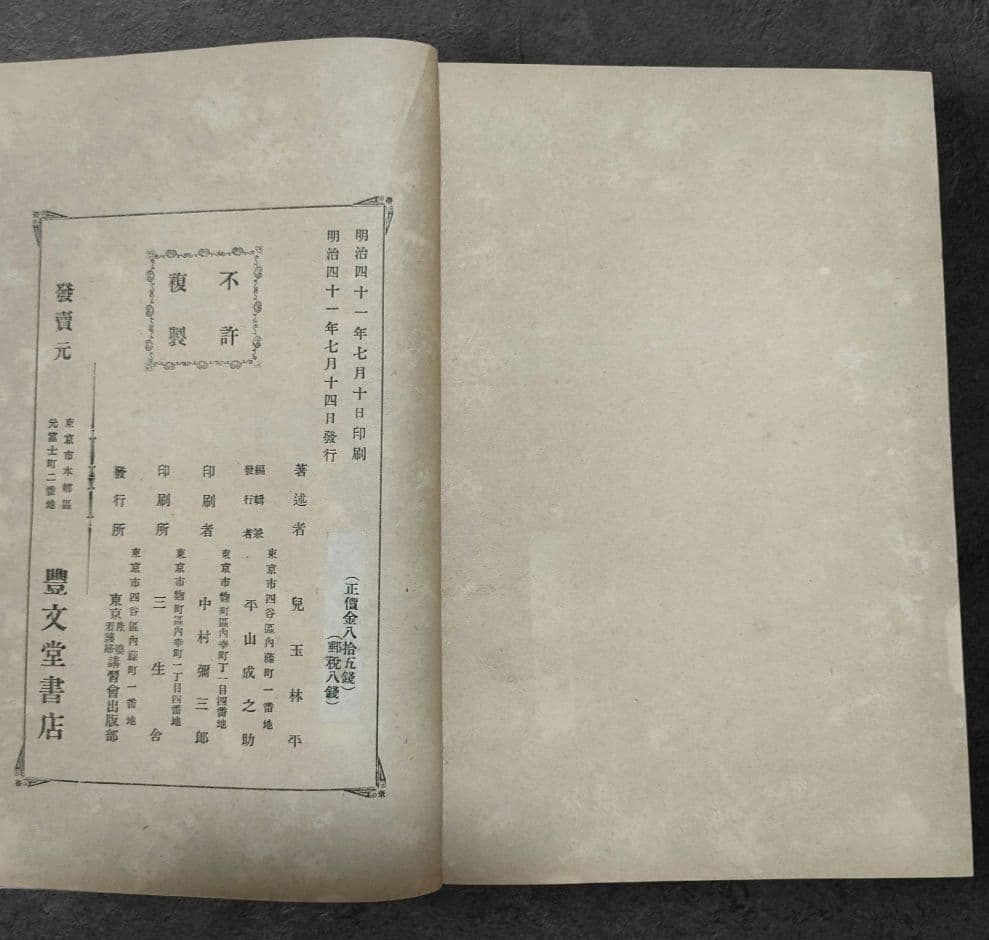 明治四十一年七月十日印刷
明治四十一年七月十四日發行
不許
複製
(正價金八拾五錢)
(郵稅八錢)
著述者 兒玉林平
東京市四谷區內藤町一番地
編輯兼
發行者 平山成之助
東京市麴町區內幸町丁一目四番地
印刷者 中村彌三郎
東京市麴町區內幸町一丁目四番地
印刷所 三生舍
東京市四谷區內藤町一番地
發行所 東京產婆看護婦講習會出版部
發賣元
東京市本鄉區
元富士町二番地
豐文堂書店